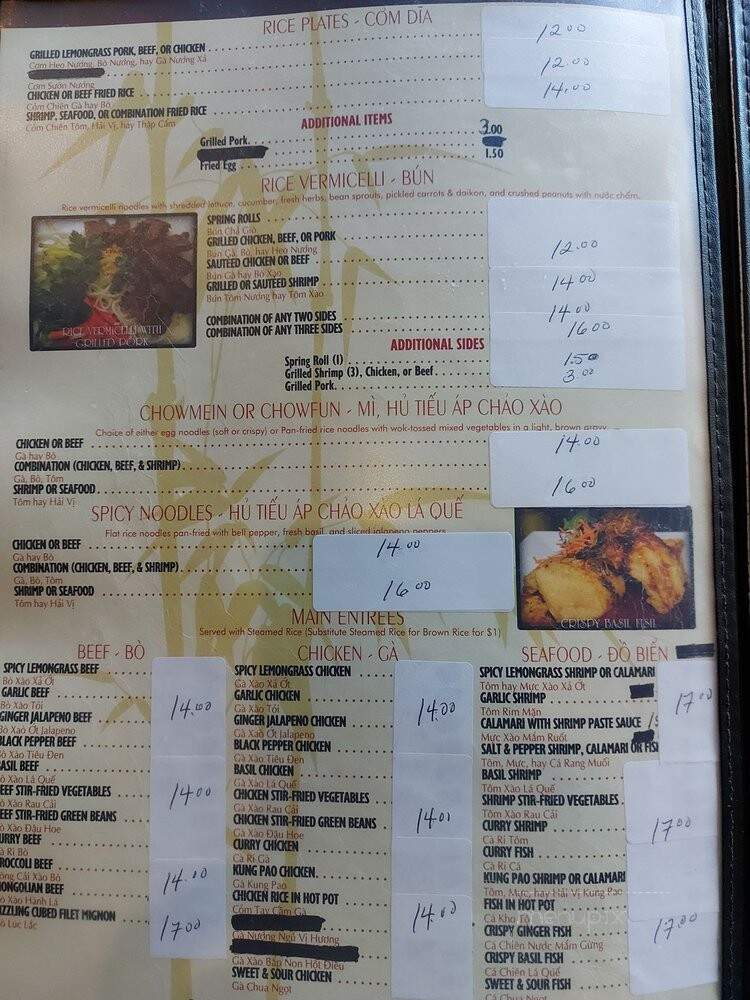 RICE PLATES - CƠM DĨA
GRILLED LEMONGRASS PORK, BEEF, OR CHICKEN
12.00
Cơm Heo Nướng, Bò Nướng, hay Gà Nướng Xả
12.00
Cơm Sườn Nướng
CHICKEN OR BEEF FRIED RICE
14.00
Cơm Chiên Gà hay Bò
SHRIMP, SEAFOOD, OR COMBINATION FRIED RICE
Cơm Chiên Tôm, Hải Vị, hay Thập Cẩm
ADDITIONAL ITEMS
Grilled Pork. 3.00
Fried Egg 1.50
RICE VERMICELLI - BÚN
Rice vermicelli noodles with shredded lettuce, cucumber, fresh herbs, bean sprouts, pickled carrots & daikon, and crushed peanuts with nước chấm.
SPRING ROLLS
Bún Chả Giò
GRILLED CHICKEN, BEEF, OR PORK
12.00
Bún Gà, Bò, hay Heo Nướng
SAUTEED CHICKEN OR BEEF
Bún Gà hay Bò Xào
GRILLED OR SAUTÉED SHRIMP
14.00
Bún Tôm Nướng hay Tôm Xào
COMBINATION OF ANY TWO SIDES
14.00
COMBINATION OF ANY THREE SIDES
16.00
RICE VERMICELLI WITH
GRILLED PORK
ADDITIONAL SIDES
Spring Roll (1)
1.50
Grilled Shrimp (3), Chicken, or Beef
3.00
Grilled Pork.
CHOWMEIN OR CHOWFUN - MÌ, HỦ TIẾU ÁP CHẢO XÀO
Choice of either egg noodles (soft or crispy) or Pan-fried rice noodles with wok-tossed mixed vegetables in a light, brown gravy
CHICKEN OR BEEF
14.00
Gà hay Bò
COMBINATION (CHICKEN, BEEF, & SHRIMP)
Gà, Bò, Tôm
SHRIMP OR SEAFOOD
16.00
Tôm hay Hải Vị
SPICY NOODLES - HỦ TIẾU ÁP CHẢO XÀO LÁ QUẾ
Flat rice noodles pan-fried with bell pepper, fresh basil, and sliced jalapeno peppers
CHICKEN OR BEEF
14.00
Gà hay Bò
COMBINATION (CHICKEN, BEEF, & SHRIMP)
Gà, Bò, Tôm
SHRIMP OR SEAFOOD
16.00
Tôm hay Hải Vị
CRISPY BASIL FISH
MAIN ENTREES
Served with Steamed Rice (Substitute Steamed Rice for Brown Rice for $1)
BEEF - BÒ
SPICY LEMONGRASS BEEF
Bò Xào Xả Ớt
GARLIC BEEF
Bò Xào Tỏi
14.00
GINGER JALAPENO BEEF
Bò Xào Ớt Jalapeno
BLACK PEPPER BEEF
Bò Xào Tiêu Đen
BASIL BEEF
Bò Xào Lá Quế
EEF STIR-FRIED VEGETABLES
14.00
ò Xào Rau Cải
EEF STIR-FRIED GREEN BEANS
ò Xào Đậu Hoe
URRY BEEF
à Ri Bò
ROCCOLI BEEF
14.00
ông Cải Xào Bò
ONGOLIAN BEEF
ò Xào Hành Lá
IZZLING CUBED FILET MIGNON
17.00
ò Lúc Lắc
CHICKEN - GÀ
SPICY LEMONGRASS CHICKEN
Gà Xào Xả Ớt
GARLIC CHICKEN
Gà Xào Tỏi
14.00
GINGER JALAPENO CHICKEN
Gà Xào Ớt Jalapeno
BLACK PEPPER CHICKEN
Gà Xào Tiêu Đen
BASIL CHICKEN
Gà Xào Lá Quế
CHICKEN STIR-FRIED VEGETABLES
Gà Xào Rau Cải
CHICKEN STIR-FRIED GREEN BEANS
14.00
Gà Xào Đậu Hoe
CURRY CHICKEN
Cà Ri Gà
KUNG PAO CHICKEN.
Gà Kung Pao
CHICKEN RICE IN HOT POT
14.00
Cơm Tay Cầm Gà
Gà Nướng Ngũ Vị Hương
Gà Xào Bắp Non Hột Điều
SWEET & SOUR CHICKEN
Gà Chua Ngọt
SEAFOOD - ĐỒ BIỂN
SPICY LEMONGRASS SHRIMP OR CALAMARI
Tôm hay Mực Xào Xả Ớt
GARLIC SHRIMP
17.00
Tôm Rim Mặn
CALAMARI WITH SHRIMP PASTE SAUCE
Mực Xào Mắm Ruốt
SALT & PEPPER SHRIMP, CALAMARI OR FISH
Tôm, Mực, hay Cá Rang Muối
BASIL SHRIMP
Tôm Xào Lá Quế
SHRIMP STIR-FRIED VEGETABLES
Tôm Xào Rau Cải
CURRY SHRIMP
17.00
Cà Ri Tôm
CURRY FISH
Cà Ri Cá
KUNG PAO SHRIMP OR CALAMARI
Tôm, Mực, hay Hải Vị Kung Pao
FISH IN HOT POT
Cá Kho
CRISPY GINGER FISH
17.00
Cá Chiên Nước Mắm Gừng
CRISPY BASIL FISH
Cá Chiên Lá Quế
SWEET & SOUR FISH
Cá Chua Ngọt
menupix